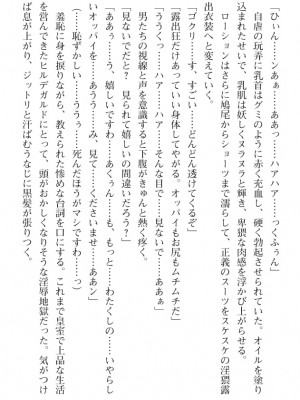 「ひぃん……ンあぁ……ああっ……ハァハァ……くっくふぅん」
　自虐の玩弄に乳首はグミのように赤く充血し、硬く勃起させられていた。オイルを塗り
込まれたせいで、乳肌は妖しくヌラヌラと輝き、卑猥な肉感を浮かび上がらせる。
　ローションはさらに鳩尾からショーツまで濡らして、正義のスーツをスケスケの淫猥露
出衣装へと変えていく。
「ゴクリ……す、すごい……どんどん透けてくるぞ」
「露出狂だけあっていい身体してやがる。オッパイもお尻もムチムチだ」
「ううくっ……ハァ……ハァ……そんな目で……見ないで……ああぁ」
　男たちの視線と声を意識すると下腹がきゅんと熱く疼く。
「見ないでだと？　見られて嬉しいの間違いだろう？」
「あぁっ……う、嬉しいですわ……あくぅん……も、もっと……わたくしの……いやらし
いオッパイを……あううぅン……み、見て……くださいませ……ああン」
（……恥ずかしい……ううぅ……死んだほうがマシですわ……っ）
　羞恥に身を捩りながら、教えられた惨めな台詞を口にする。これまで皇室で上品な生活
を営んできたヒルデガルドにとって、頭がおかしくなりそうな淫辱地獄だった。気がつけ
ば息が上がり、ジットリと汗ばむうなじに黒髪が張りつく。